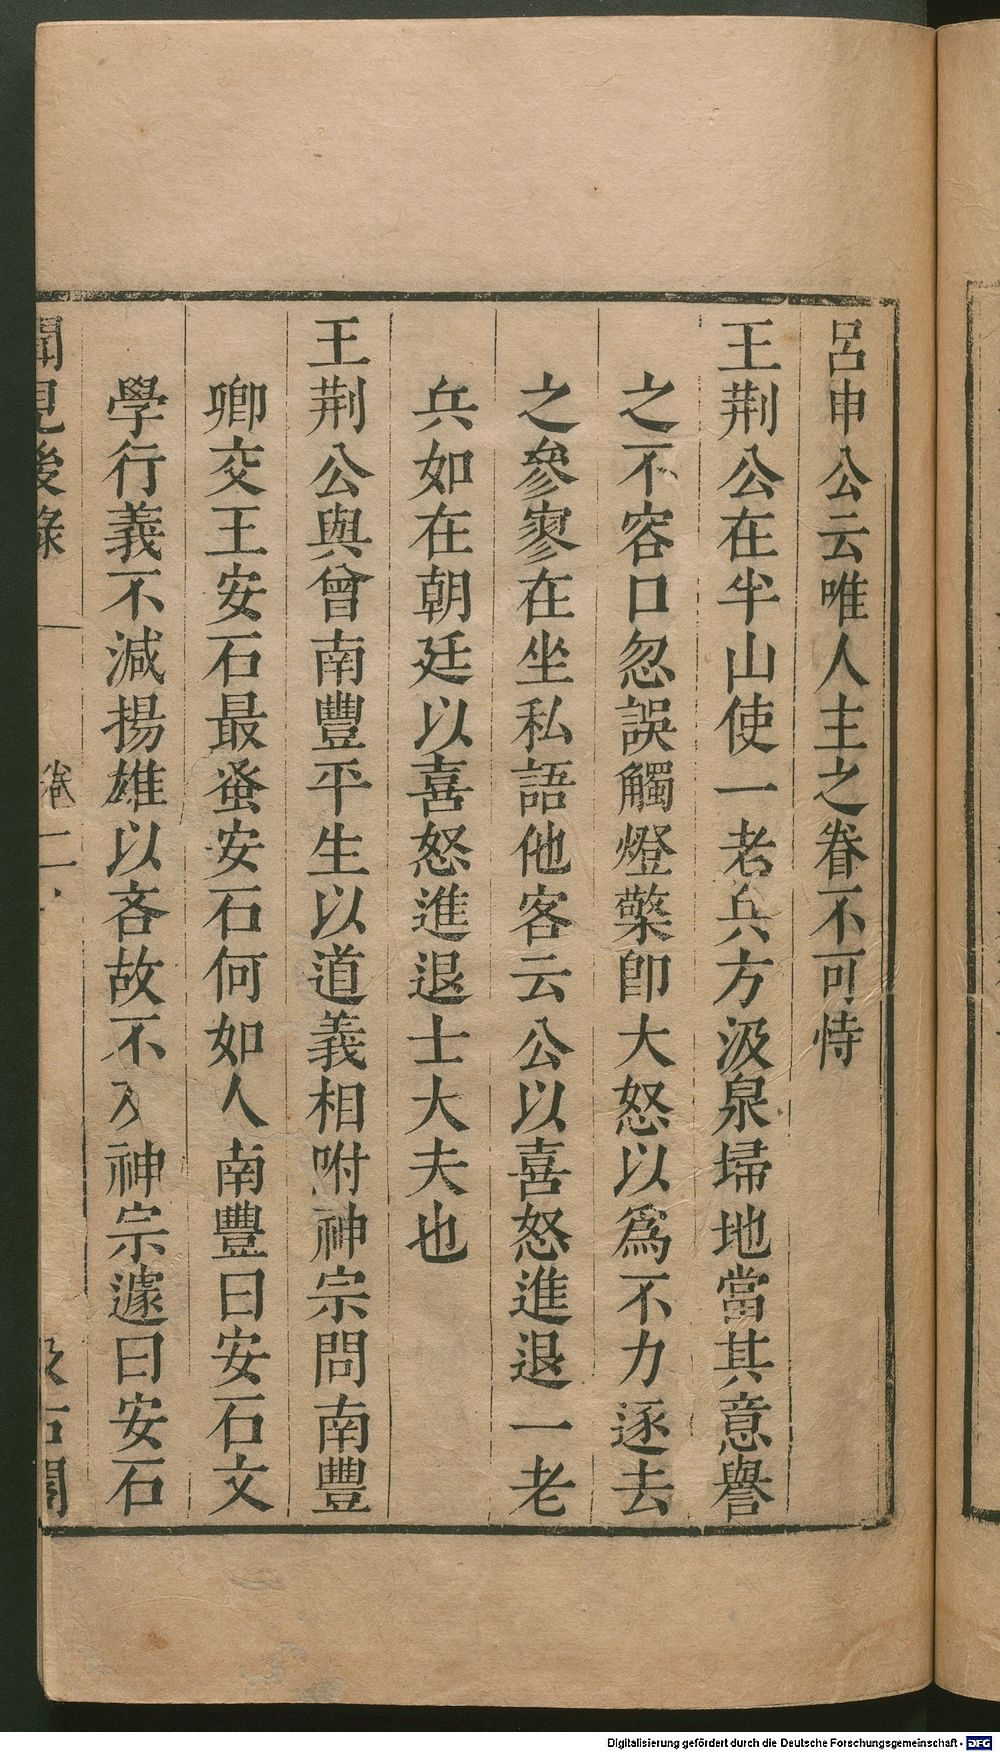 呂申公云唯人主之眷不可恃
王荆公在半山使一老兵方汲泉埽地當其意譽
之不容口忽誤觸燈檠卽大怒以爲不力逐去
之參寥在坐私語他客云公以喜怒進退一老
兵如在朝廷以喜怒進退士大夫也
王荆公與曾南豐平生以道義相咐神宗問南豐
卿交王安石最蚤安石何如人南豐曰安石文
學行義不減揚雄以吝故不及神宗遽曰安石
聞見後錄 卷二 汲古閣
Digitalisierung gefördert durch die Deutsche Forschungsgemeinschaft - DFG